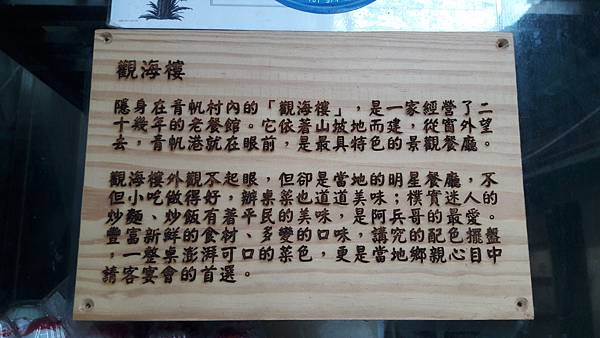 觀海樓
隱身在青帆村內的「觀海樓」，是一家經營了二
十幾年的老餐館。它依著山坡地而建，從窗外望
去，青帆港就在眼前，是最具特色的景觀餐廳。
觀海樓外觀不起眼，但卻是當地的明星餐廳，不
但小吃做得好，辦桌菜也道道美味；樸實迷人的
炒麵、炒飯有著平民的美味，是阿兵哥的最愛。
豐富新鮮的食材、多變的口味，講究的配色擺盤
，一整桌澎湃可口的菜色，更是當地鄉親心目中
請客宴會的首選。